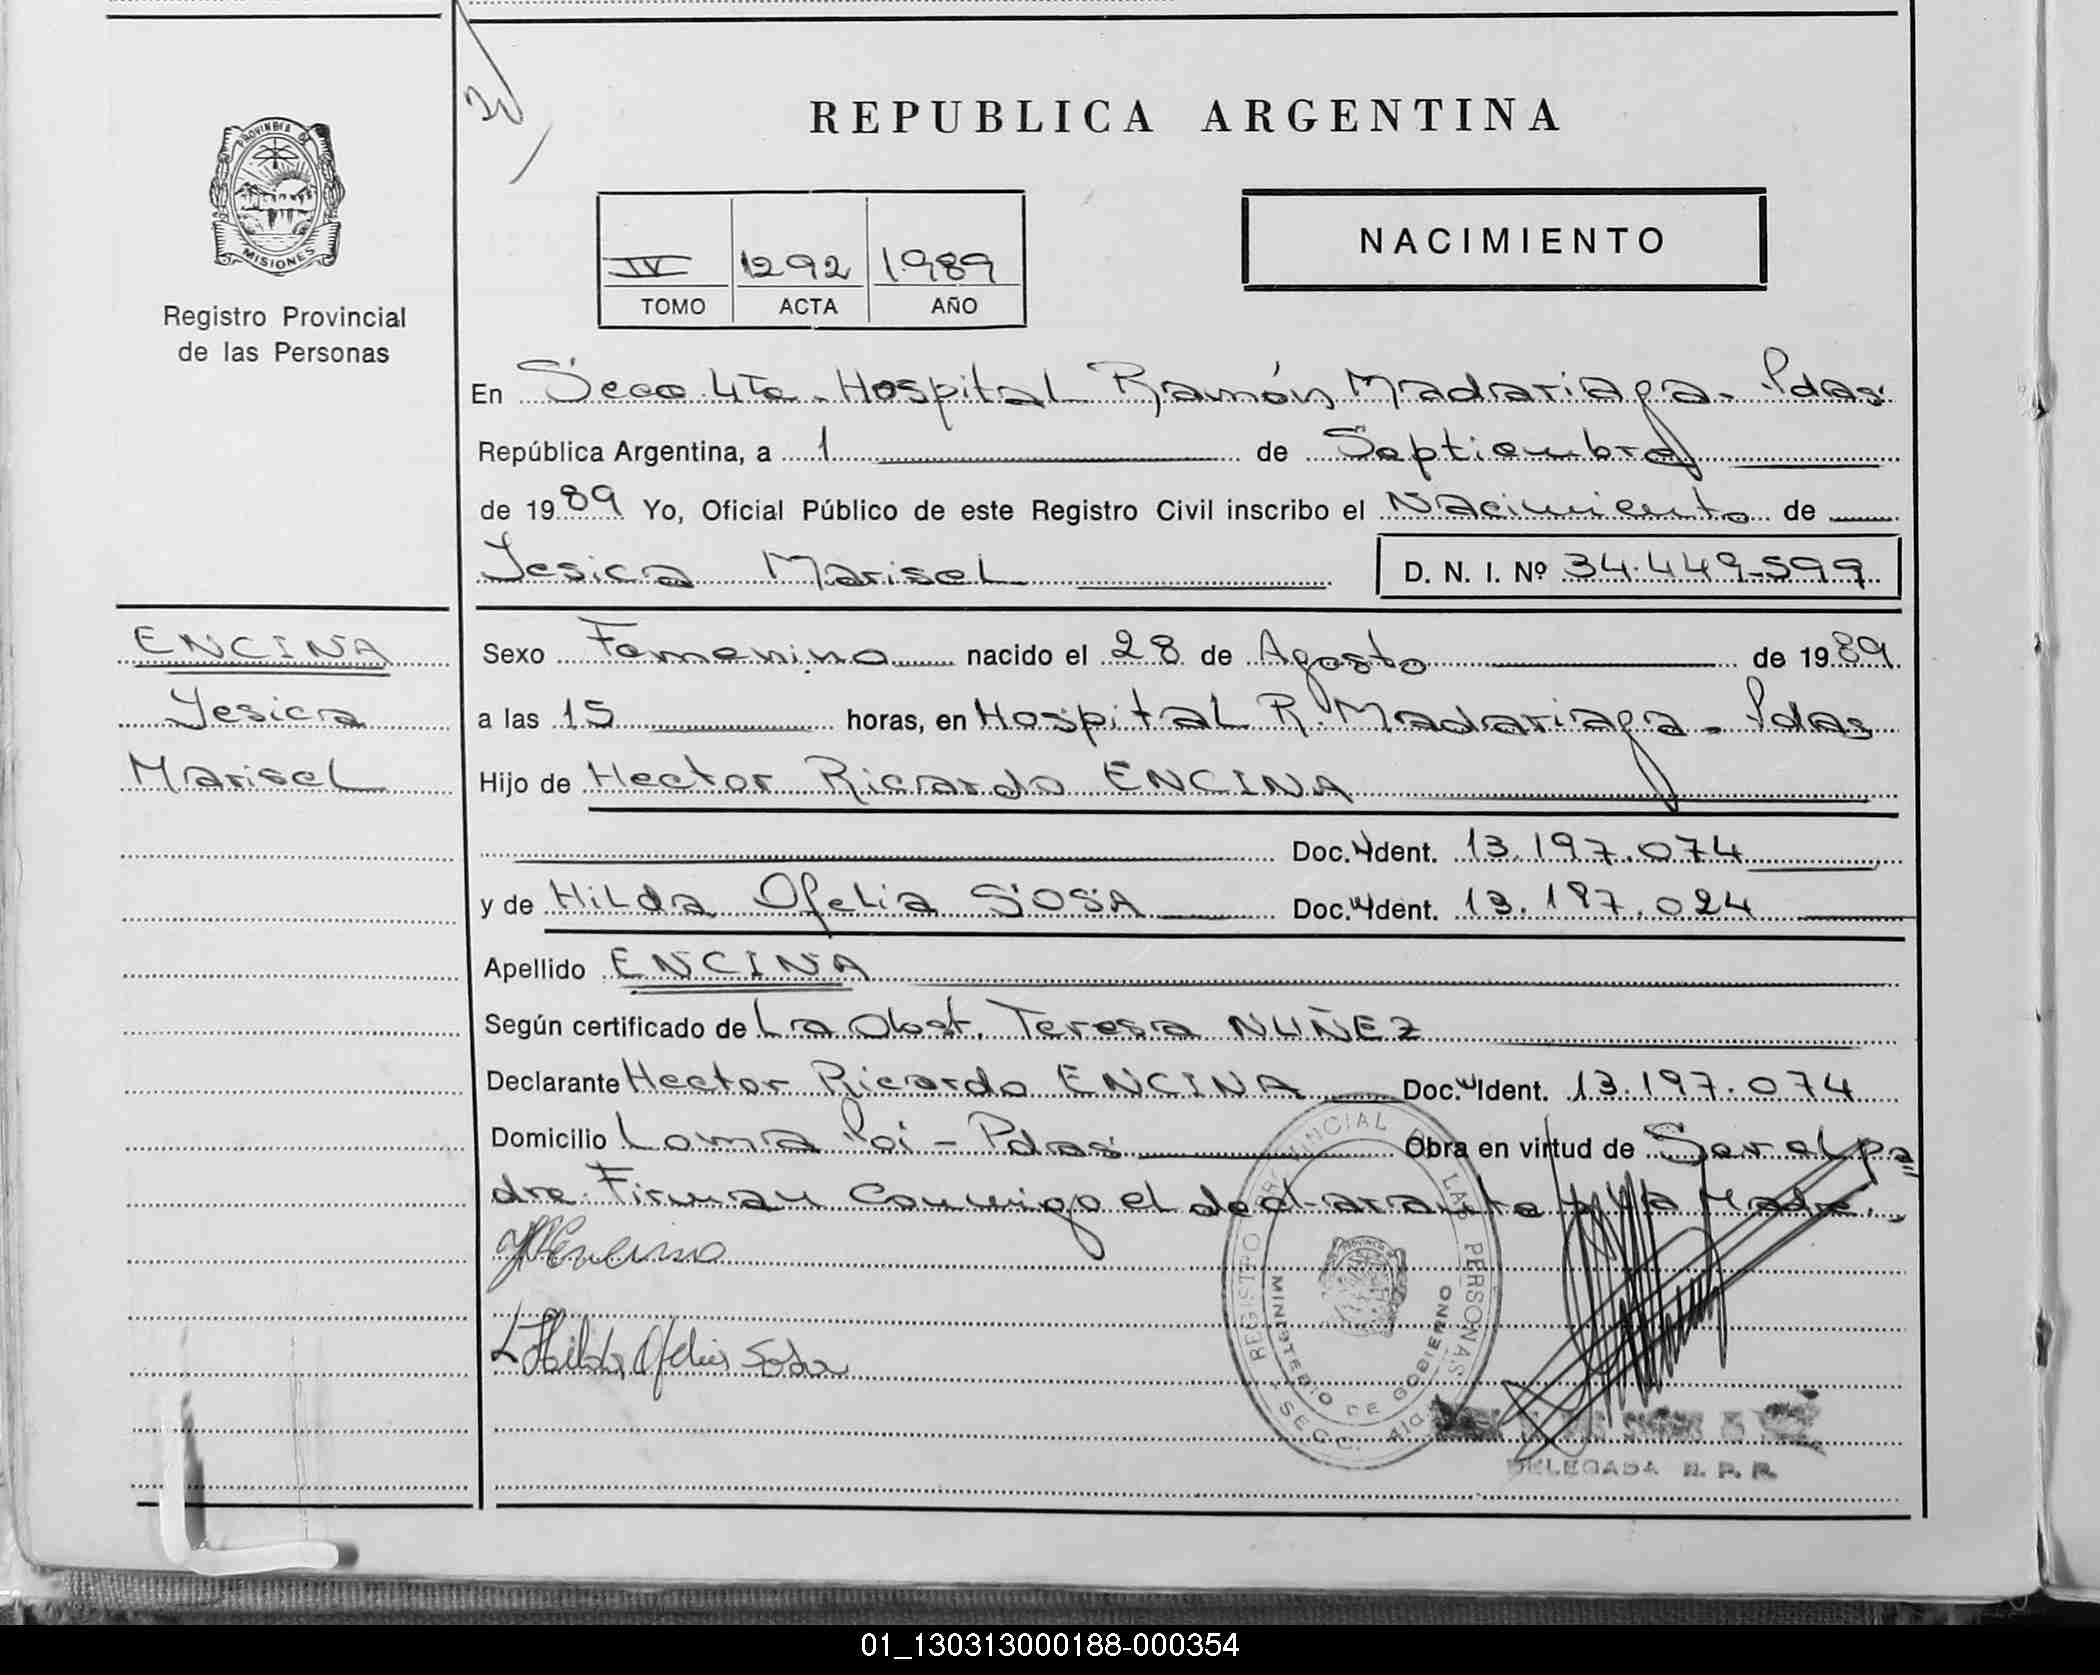 REPUBLICA ARGENTINA
PROVINCIA DE
MISIONES
Registro Provincial
de las Personas
IV 1292 1989
TOMO ACTA AÑO
NACIMIENTO
En Secc. 4ta. Hospital Ramón Madariaga - Pdas.
República Argentina, a 1 de Septiembre
de 1989 Yo, Oficial Público de este Registro Civil inscribo el Nacimiento de
Yesica Marisel D. N. I. Nº 34.449.599
ENCINA
Yesica
Marisel
Sexo Femenino nacido el 28 de Agosto de 1989
a las 15 horas, en Hospital R. Madariaga - Pdas
Hijo de Hector Ricardo ENCINA
Doc. Ident. 13.197.074
y de Hilda Ofelia SOSA Doc. Ident. 13.187.024
Apellido ENCINA
Según certificado de La Obst. Teresa NUÑEZ
Declarante Hector Ricardo ENCINA Doc. Ident. 13.197.074
Domicilio Loma Poi - Pdas Obra en virtud de Ser el pa=
dre. Firman Conmigo el declarante y la Madre.
HREncina
Hilda Ofelia Sosa
REGISTRO PROVINCIAL DE LAS PERSONAS
MINISTERIO DE GOBIERNO
SECC. 4ta. Pdas
DELEGADA R. P. P.
01_130313000188-000354